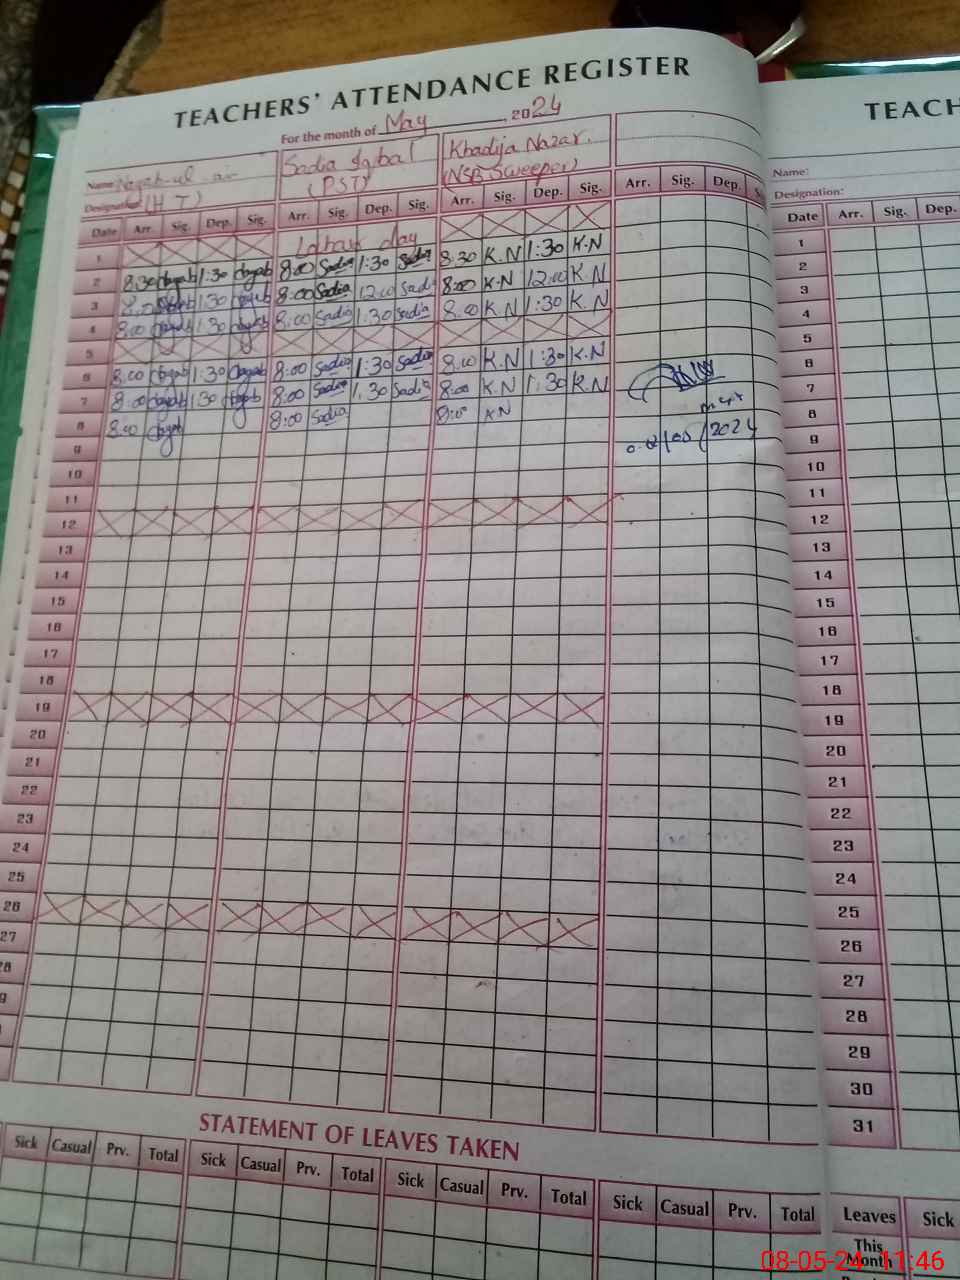 TEACHERS' ATTENDANCE REGISTER
For the month of May, 2024
Name Sadia Iqbal Khadija Nazar.
Designation (H T) (PST) (NSB Sweeper)
Date Arr. Sig. Dep. Sig. Arr. Sig. Dep. Sig. Arr. Sig. Dep. Sig. Arr. Sig. Dep.
1 Labour day
2 8:30 1:30 8:00 Sadia 1:30 Sadia 8:30 K.N 1:30 K.N
3 8:00 1:30 8:00 Sadia 12:00 Sadia 8:00 K.N 12:00 K.N
4 8:00 1:30 8:00 Sadia 1:30 Sadia 8:00 K.N 1:30 K.N
5
6 8:00 1:30 8:00 Sadia 1:30 Sadia 8:00 K.N 1:30 K.N
7 8:00 1:30 8:00 Sadia 1:30 Sadia 8:00 K.N 1:30 K.N
8 8:00 8:00 Sadia 8:00 K.N
/05/2024
9
10
11
12
13
14
15
16
17
18
19
20
21
22
23
24
25
26
27
STATEMENT OF LEAVES TAKEN
Sick Casual Prv. Total Sick Casual Prv. Total Sick Casual Prv. Total Sick Casual Prv. Total
TEACH
Name:
Designation:
Date Arr. Sig. Dep.
1
2
3
4
5
6
7
8
9
10
11
12
13
14
15
16
17
18
19
20
21
22
23
24
25
26
27
28
29
30
31
Leaves Sick
This
Month
08-05-24 11:46